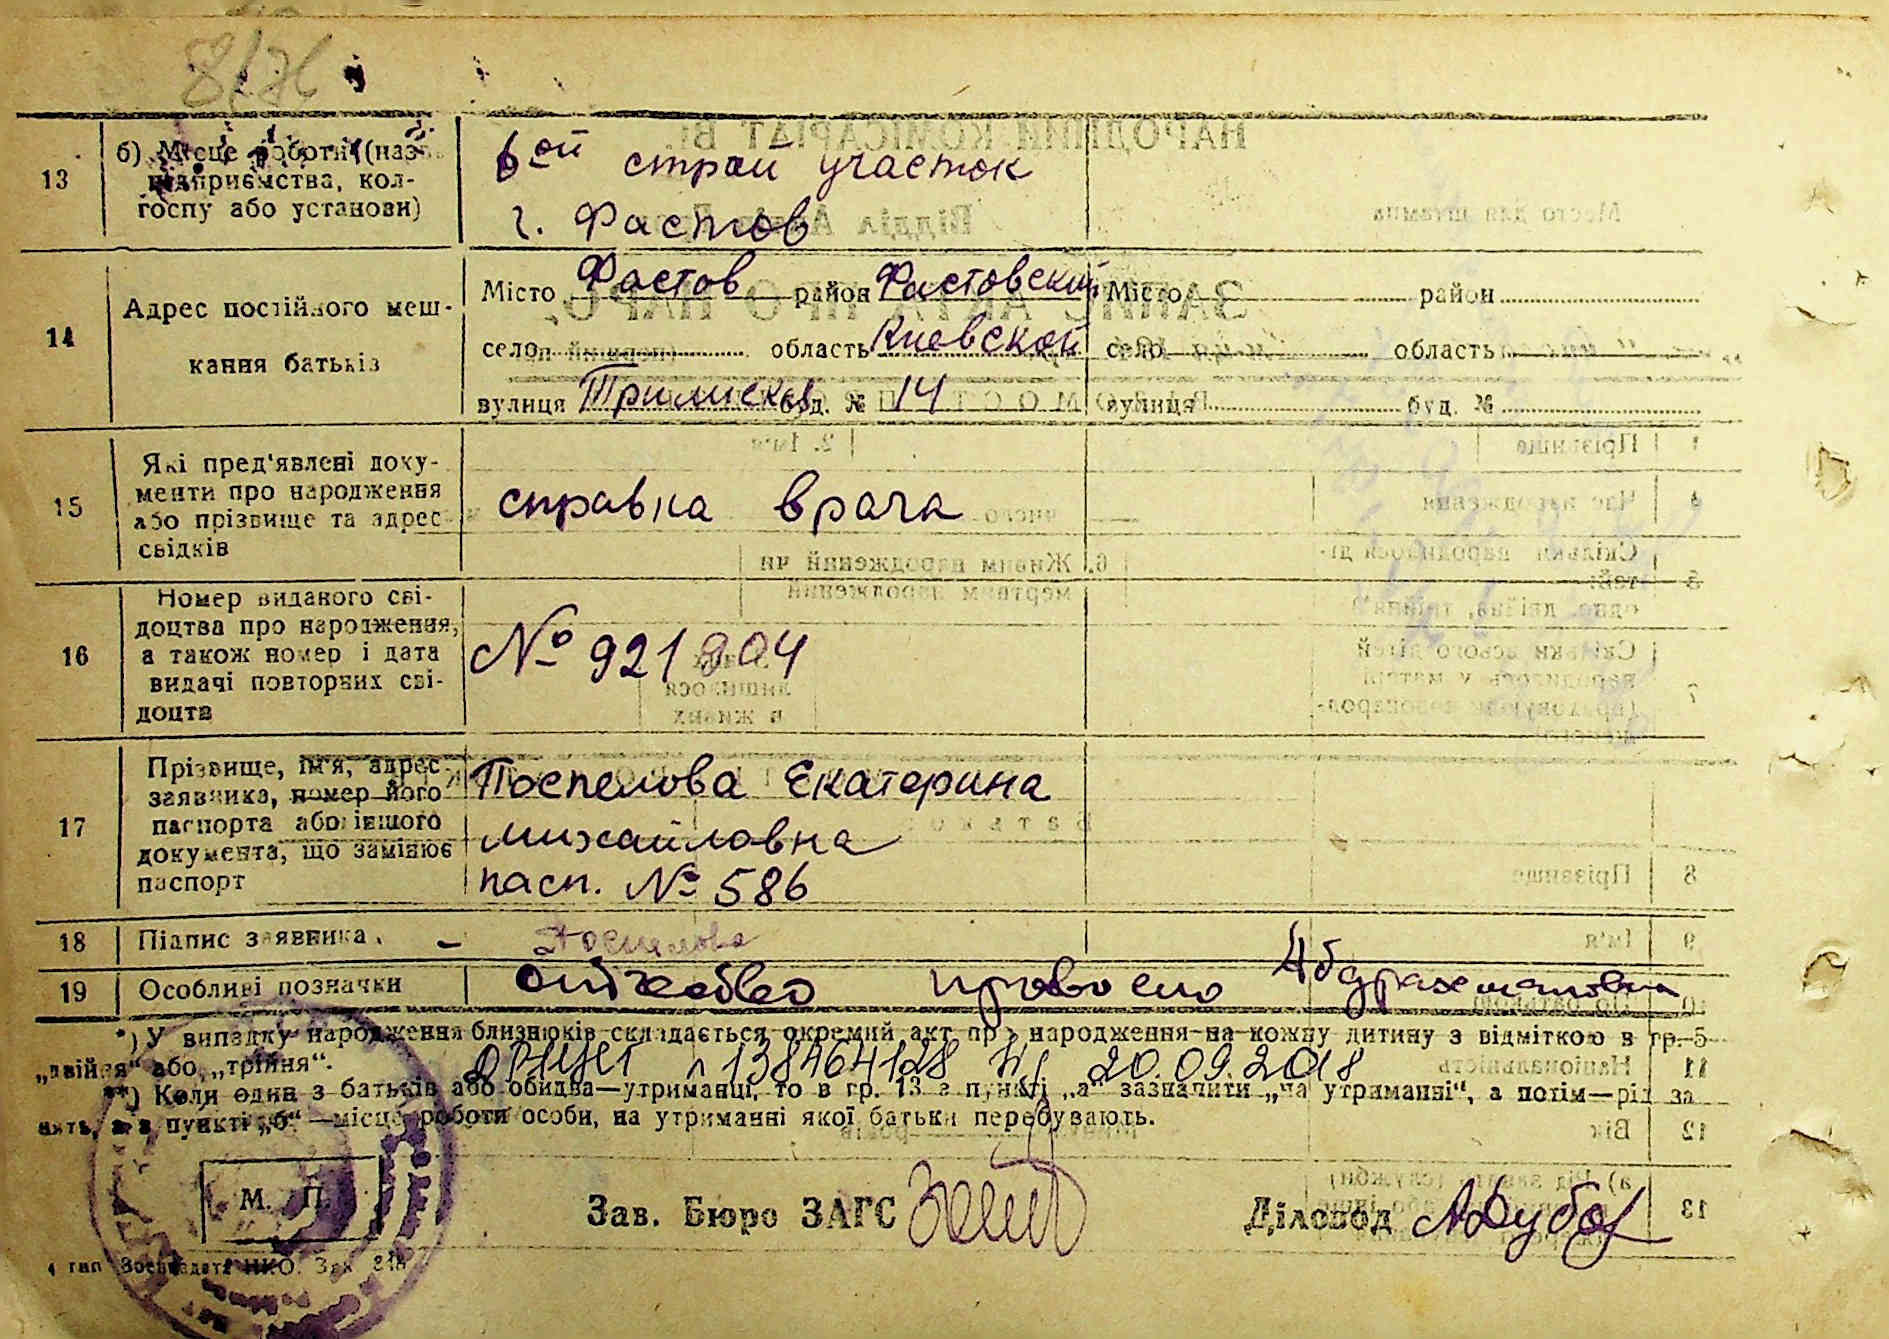 8/76
13
б) Місце роботи (назва
підприємства, кол-
госпу або установи)
6ой строй участок
г. Фастов
14
Адрес постійного меш-
кання батьків
Місто Фастов район Фастовский Місто район
село область Киевской село область
вулиця буд. № 14 вулиця буд. №
15
Які пред'явлені доку-
менти про народження
або прізвище та адрес
свідків
справка врача
16
Номер виданого сві-
доцтва про народження,
а також номер і дата
видачі повторних сві-
доцтв
№ 921904
17
Прізвище, ім'я, адрес
заявника, номер його
паспорта або іншого
документа, що замінює
паспорт
Поспелова Екатерина
Михайловна
пасп. № 586
18
Підпис заявника.
Поспелова
19
Особливі позначки
Абдрахмановна
*) У випадку народження близнюків складається окремий акт про народження на кожну дитину з відміткою в гр. 5
„двійня“ або „трійня“.
138464128 20.09.2018
**) Коли один з батьків або обидва—утриманці, то в гр. 13 в пункті „а“ зазначити „на утриманні“, а потім—рід за
нять, а в пункті „б“—місце роботи особи, на утриманні якої батьки перебувають.
М. П.
Зав. Бюро ЗАГС
Діловод